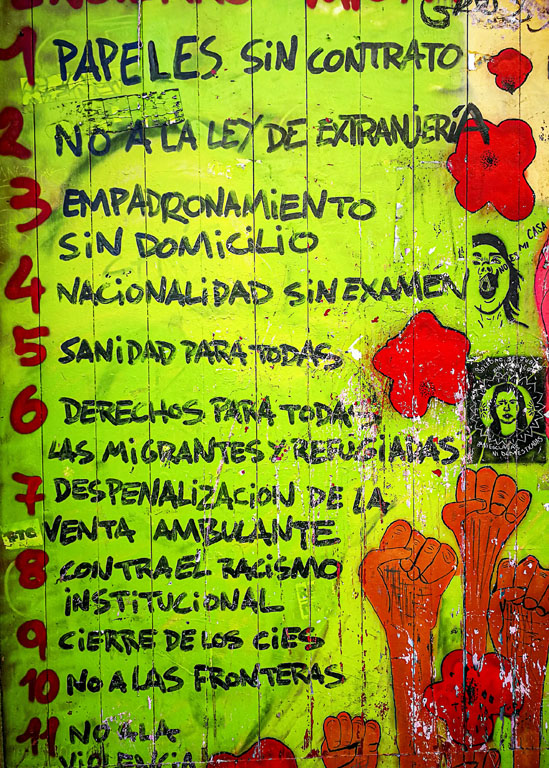 1 PAPELES SiN CONTRATO
2 NO A LA LEY DE EXTRANJERÍA
3 EMPADRONAMIENTO
SiN DOMiCiLiO
4 NACiONALiDAD SiN EXAMEN
5 SANiDAD PARA TODAS
6 DERECHOS PARA TODAS
LAS MiGRANTES Y REFUGiADAS
7 DESPENALiZACiON DE LA
VENTA AMBULANTE
8 CONTRA EL RACiSMO
iNSTiTUCiONAL
9 CiERRE DE LOS CiES
10 NO A LAS FRONTERAS
11 NO A LA
ViOLENCiA
Mi CASA